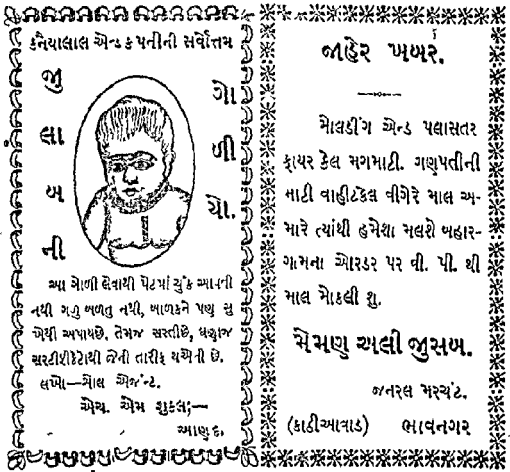 કનૈયાલાલ એન્ડ કપનીની સર્વોત્તમ
જુલાબની
ગોળીયો.
આ ગોળી લેવાથી પેટમાં ચુંક આવતી
નથી ગળુ બળતુ નથી, બાળકને પણ સુ
ખેથી અપાયછે. તેમજ સરતીછે, ઘણાજ
સરટીફીકેટોથી જેની તારીફ થએની છે.
લખો—એાલ એજંન્ટ.
એચ. એમ શુકલ;—
આણુદ.
જાહેર ખબર.
મેાલડીંગ એન્ડ પલાસતર
ફાયર કલે મગમાટી. ગણપતીની
માટી વાહીટકલ વીગેરે માલ અ-
મારે ત્યાંથી હમેશા મલશે બહાર-
ગામના એારડર પર વી. પી. થી
માલ મેાકલી શુ.
મેમણ અલી જુસબ.
જનરલ મરચંટ.
(કાઠીઆવાડ) ભાવનગર